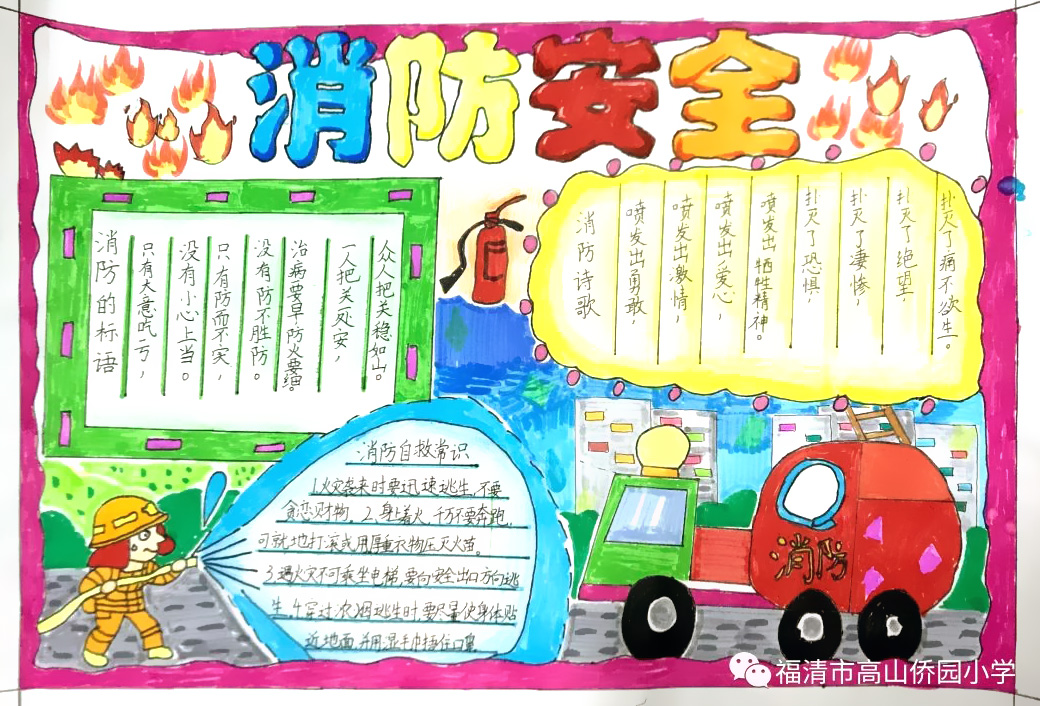 消防安全
消防的标语
只有大意吃亏，
没有小心上当。
只有防而不实，
没有防不胜防。
治病要早防火要细。
一人把关处安，
众人把关稳如山。
消防诗歌
喷发出勇敢，
喷发出激情，
喷发出爱心，
喷发出牺牲精神。
扑灭了恐惧，
扑灭了凄惨，
扑灭了绝望
扑灭了病不欲生。
消防自救常识
1.火灾袭来时要迅速逃生,不要
贪恋财物。2、身上着火,千万不要奔跑,
可就地打滚或用厚重衣物压灭火苗。
3.遇火灾不可乘坐电梯,要向安全出口方向逃
生.4.穿过浓烟逃生时,要尽量使身体贴
近地面,并用湿毛巾捂住口鼻
消防
福清市高山侨园小学